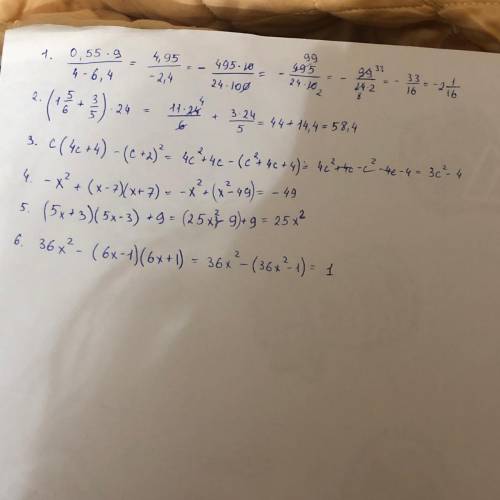 1. 0,55·9/4-6,4 = 4,95/-2,4 = - 495·10/24·100 = - 495/24·10 99 2 = - 99/24·2 33 8 = - 33/16 = -2 1/16
2. (1 5/6 + 3/5)·24 = 11·24/6 4 + 3·24/5 = 44+14,4=58,4
3. c(4c+4)-(c+2)² = 4c²+4c-(c²+4c+4)= 4c²+4c-c²-4c-4=3c²-4
4. -x²+(x-7)(x+7)=-x²+(x²-49)=-49
5. (5x+3)(5x-3)+9=(25x²-9)+9=25x²
6. 36x²-(6x-1)(6x+1)=36x²-(36x²-1)=1